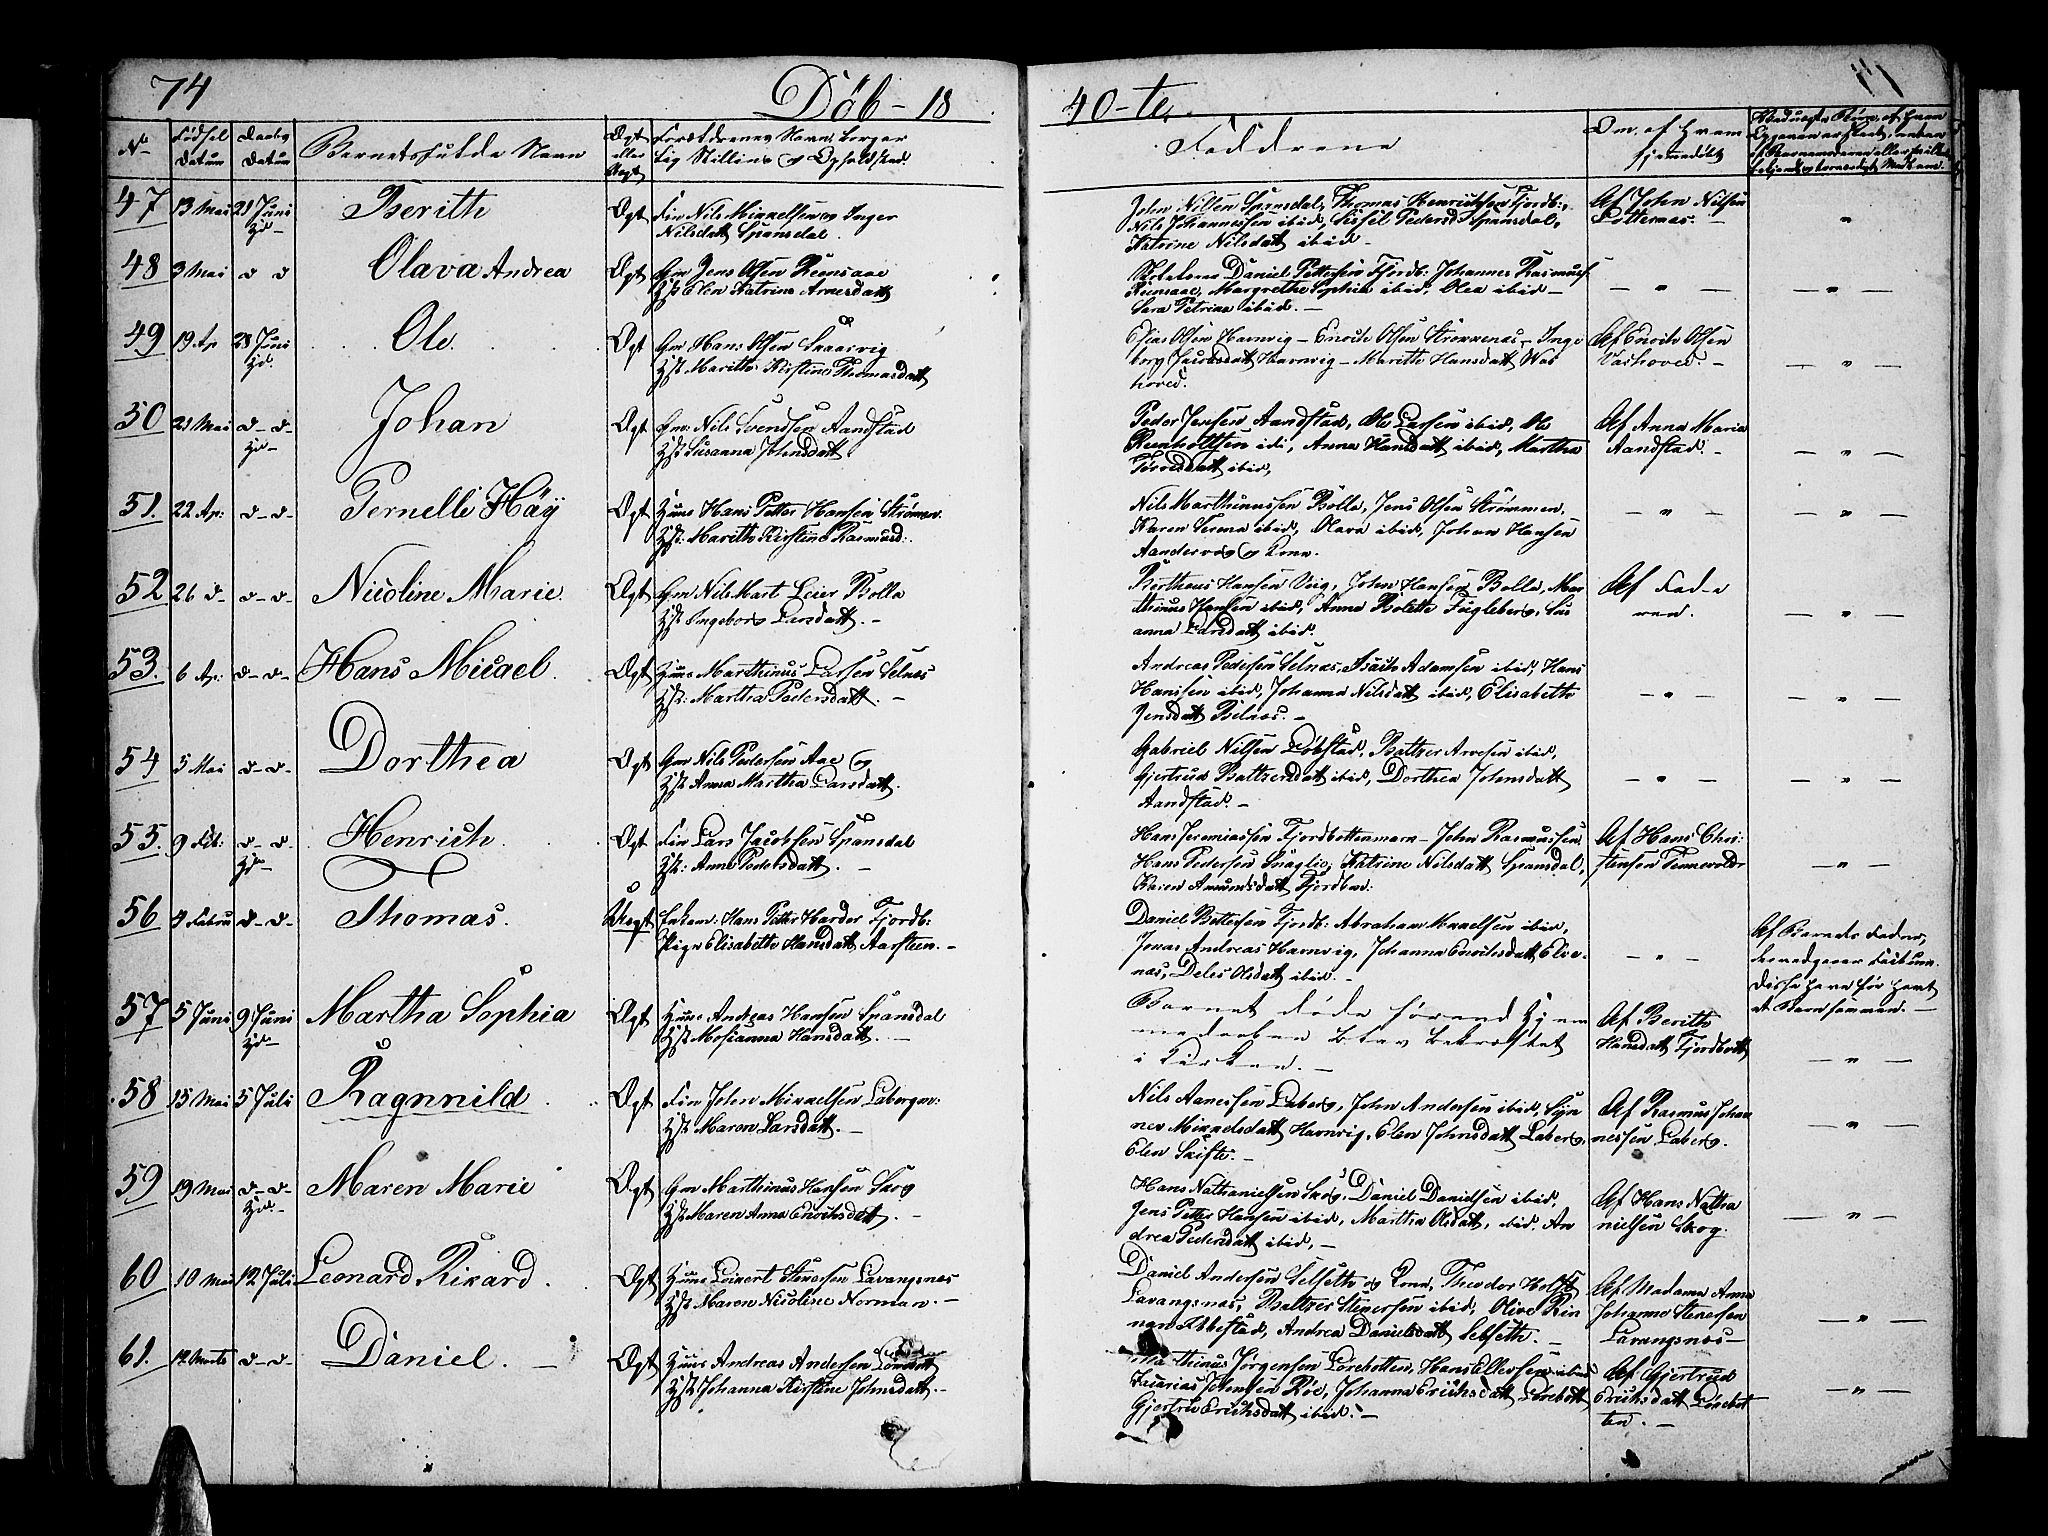 74
Döb - 18
40-te.
No
Fødsel
Datum
Daabs
Datum
Barnets fulde Navn
Ægt
eller
Uægt
Forældrenes Navn, borger
lig Stilling og Opholdsted.
Faddrene
Om, af hvem
hjemmedøbt
47 13 Mai 21 Juni Berith
Ægt Fin Nils Mikkelsen og Inger
Nilsdatt Spansdal.
John Nilsen Spansdal, Thomas Henrichsen Fjordb:,
Nils Johannessen ibid, Sissel Pedersd Spansdal,
Katrine Nilsdatt ibid -
Af John Nilsen
48 3 Mai d d Olava Andrea
Ægt Gm Jens Olsen Rensaae
Hst Elen Katrine Arnesdatt
Daniel Pettersen Fjordb: Johannes Rasmuss
Rensaae, Margrethe Sophia ibid, Olea ibid -
Sara Petrine ibid. -
49 19 Ap 28 Juni Ole.
Ægt Gm Hans Olsen Skaarvig
Hst Marithe Kirstine Thomasdatt
Elias Olsen Havnvig - Enok Olsen Strømmenæs - Inge
borg Havnvig - Marith Hansdatt Vas
hoved.
Af Enok Olsen
Vashoved. -
50 21 Mai d- d- Johan
Ægt Gm: Nils Svendsen Aandstad
Hst Susanna Johnsdatt
Peder Jensen Aandstad, Ole Larsen ibid, Ole
Reinholtsen ibi, Anna Hansdatt ibid, Martha
ibid,
Af Anna Maria
Aandstad. -
51. 22 Ap: d- d- Pernelle Häÿ
Ægt Huus Hans Petter Hansen Strømen
Hst: Marith Kirstine Rasmusd:
Nils Marthinussen Bolle, Jens Olsen Strømmen,
Karen ibid, Olava ibid, Johan Hansen
og Kone.
52 26 d- d- d- Nicoline Marie.
Ægt Gm Nils Mart Leier Bolla
Hst Ingeborg Larsdatt. -
Bertheus Hansen Vig, John Hansen Bolla, Mar
thinus Hansen ibid, Anna Bolette Fugleberg, Sus
anna Larsdatt ibid.
Af Fade
ren.
53. 6 Ap: d- d- Hans Micael.
Ægt Huus Marthinus Larsen Selnæs
Hst: Martha Pedersdatt. -
Andreas Pedersen Selnæs, Isach Adamsen ibid, Hans
Hansen ibid, Johanna Nilsdatt ibid, Elisabeth
Jensdatt Selnæs. -
54 5 Mai d- d- Dorthea
Ægt Gm Nils Pedersen Aae og
Hst Anna Martha Larsdatt.
Gabriel Nilsen Løbstad, Baltzer Arnesen ibid,
Gjertrud Baltzersdatt ibid, Dorthea Johnsdatt
Aandstad. -
55. 9 Feb: d- d Henrich
Ægt Fin Lars Jacobsen Spansdal
Hst: Anne Pedersdatt. -
Hans Jeremiassen Fjordbottenmarn - John Rasmussen.
Hans Pedersen , Katrine Nilsdatt Spansdal,
Karen Amundsdatt Fjordbm:
Af Hans Chri-
stensen Tennevold
56 4 Febru d- d- Thomas.
Uægt Enkem: Hans Petter Harder Fjordb:
Pige Elisabeth Hansdatt Aarsteen. -
Daniel Pettersen Fjordb: Abraham Mikkelsen ibid,
Jonas Andreas Havnvig, Johanna Enoksdatt Elve-
næs, Deles Olsdatt ibid. -
Af Barnets Fader,
57 5 Juni 9 Juni Martha Sophia
Ægt Huus Andreas Hansen Spansdal
Hst Mosianna Hansdatt. -
Barnet døde førend Hjem
medaaben blev bekræftet
i Kirken. -
Af Berith
Hansdatt Fjordbott
58 15 Mai 5 Juli Ragnnild
Ægt Fin John Mikkelsen Labergm:
Hst Maren Larsdatt. -
Nils Aanessen Laberg, John Andersen ibid, Syn
nev Mikkelsdatt Havnvig, Elen Johnsdatt Laberg,
Elen Skifte. -
Af Rasmus Johan
nessen Laberg.
59 19 Mai d- d- Maren Marie
Ægt Gm Marthinus Hansen Skog
Hst Maren Anna Enoksdatt. -
Hans Nathanielsen Skog, Daniel Danielsen ibid,
Jens Petter Hansen ibid, Martha Olsdatt, ibid. An
drea Pedersdatt ibid. -
Af Hans Natha
nielsen Skog.
60 10 Mai 12 Juli Leonard Rikard.
Ægt Huus Loikert Stenersen Lavangsnæs
Hst Maren Nicoline Norman. -
Daniel Andersen Selseth og Kone, Theodor Holst
Lavangsnæs, Baltzer Stenersen ibid, Olive Kin
nan Ibbestad, Andrea Danielsdatt Selseth. -
Af Madame Anna
Johanna Stenersen
Lavangsnæs -
61. 12 Marts d- d- Daniel. -
Ægt Huus Andreas Andersen
Hst Johanna Kirstine Johnsdatt. -
Marthinus Jørgensen Lørebotten, Hans Ellefsen ibid
Zacarias Johnsen Röe, Johanna Erichsdatt Lørebott
Gjertru Erichsdatt ibid. -
Af Gjertrud
Erichsdatt Lørebot
ten. -